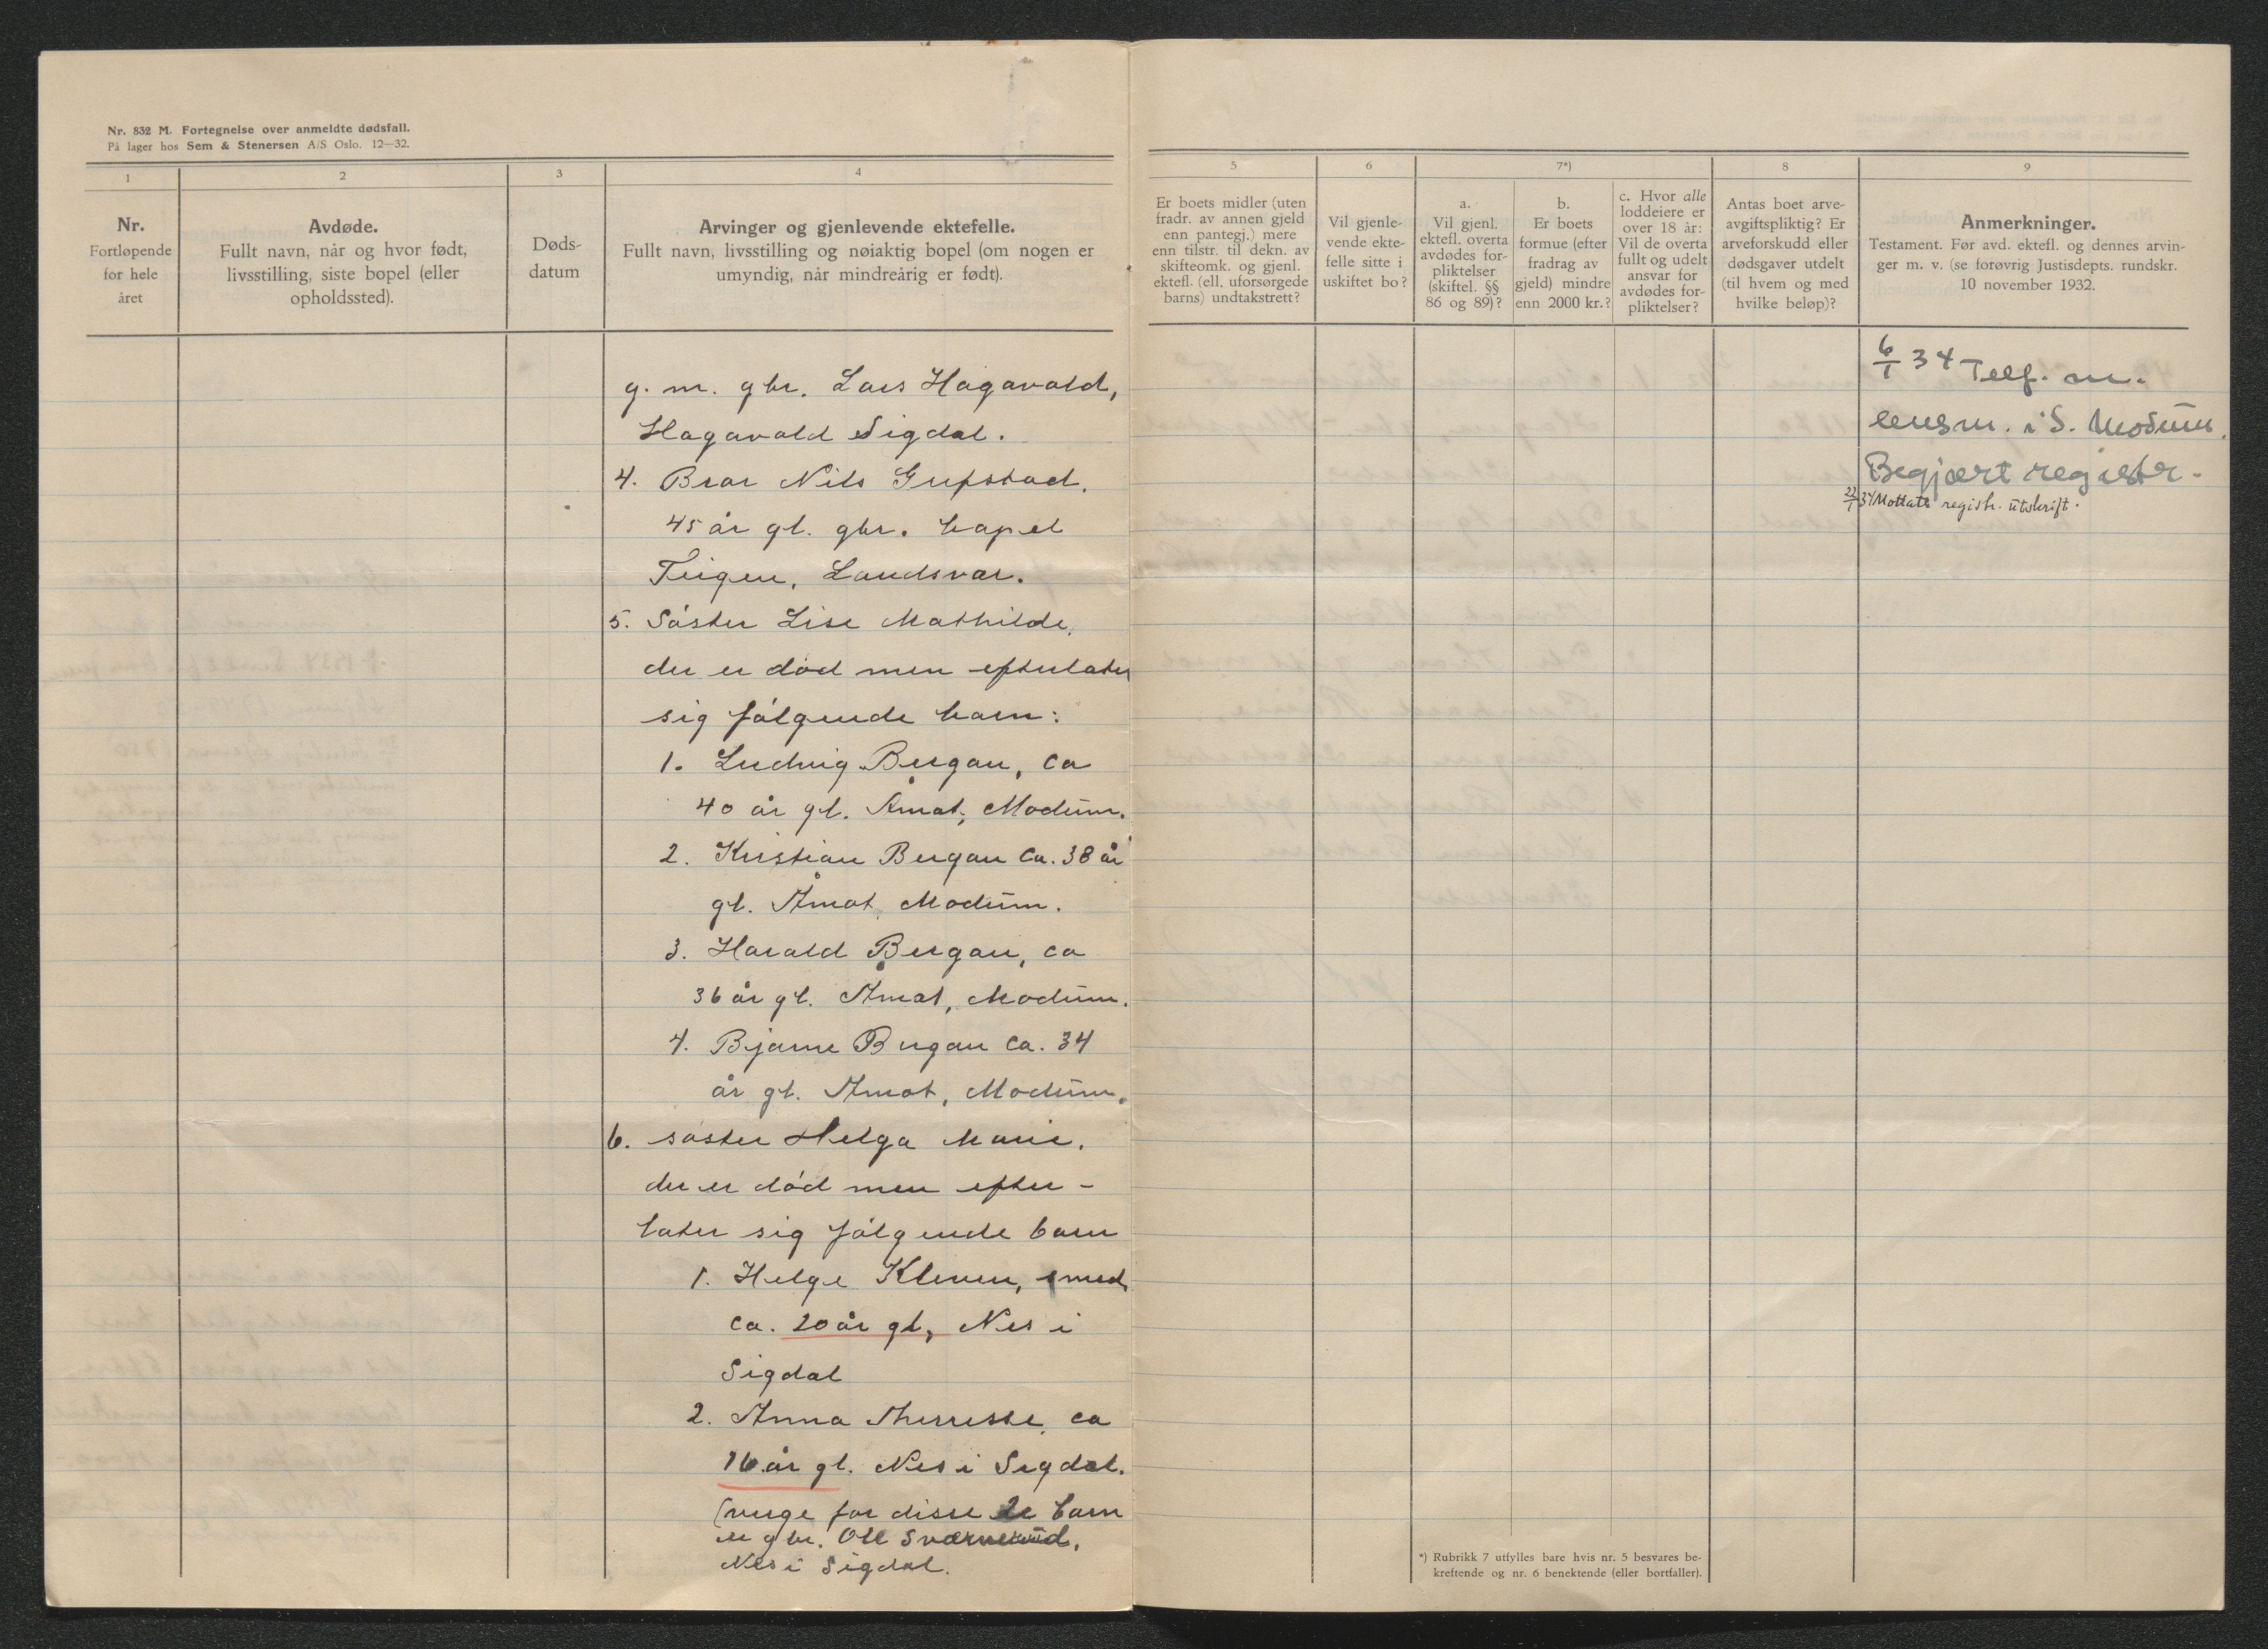 Nr. 832 M. Fortegnelse over anmeldte dødsfall.
På lager hos Sem & Stenersen A/S Oslo. 12—32.
1
2
3
4
Nr.
Fortløpende
for hele
året
Avdøde.
Fullt navn, når og hvor født,
livsstilling, siste bopel (eller
opholdssted).
Døds-
datum
Arvinger og gjenlevende ektefelle.
Fullt navn, livsstilling og nøiaktig bopel (om nogen er
umyndig, når mindreårig er født).
g. m. gbr. Lars Hagavold,
Hagavold Sigdal.
4. Bror Nils Gufstad.
45 år gl. gbr. bopel
Teigen, Landsvar.
5. Søster Lise Mathilde,
der er død men efterlater
sig følgende barn:
1. Ludvig Bergan, ca
40 år gl. Åmot, Modum.
2. Kristian Bergan ca. 38 år
gl. Åmot, Modum.
3. Harald Bergan, ca
36 år gl. Åmot, Modum.
4. Bjarne Bergan ca. 34
år gl. Åmot, Modum.
6. søster Helga Marie.
der er død men efter-
later sig følgende barn
1. Helge Kleven, smed,
ca. 20 år gl, Nes i
Sigdal
2. Anna Therresse, ca
16 år gl. Nes i Sigdal.
(verge for disse 2 barn
er gbr. Ole
Nes i Sigdal.
5
6
7*)
8
9
Er boets midler (uten
fradr. av annen gjeld
enn pantegj.) mere
enn tilstr. til dekn. av
skifteomk. og gjenl.
ektefl. (ell. uforsørgede
barns) undtakstrett?
Vil gjenle-
vende ekte-
felle sitte i
uskiftet bo?
a.
Vil gjenl.
ektefl. overta
avdødes for-
pliktelser
(skiftel. §§
86 og 89)?
b.
Er boets
formue (efter
fradrag av
gjeld) mindre
enn 2000 kr.?
c. Hvor alle
loddeiere er
over 18 år:
Vil de overta
fullt og udelt
ansvar for
avdødes for-
pliktelser?
Antas boet arve-
avgiftspliktig? Er
arveforskudd eller
dødsgaver utdelt
(til hvem og med
hvilke beløp)?
Anmerkninger.
Testament. Før avd. ektefl. og dennes arvin-
ger m. v. (se forøvrig Justisdepts. rundskr.
10 november 1932.
6/1 34 Telf. m.
lensm. i S. Modum.
Begjært registr.
22/1 34 Mottatt registr. utskrift.
*) Rubrikk 7 utfylles bare hvis nr. 5 besvares be-
kreftende og nr. 6 benektende (eller bortfaller).